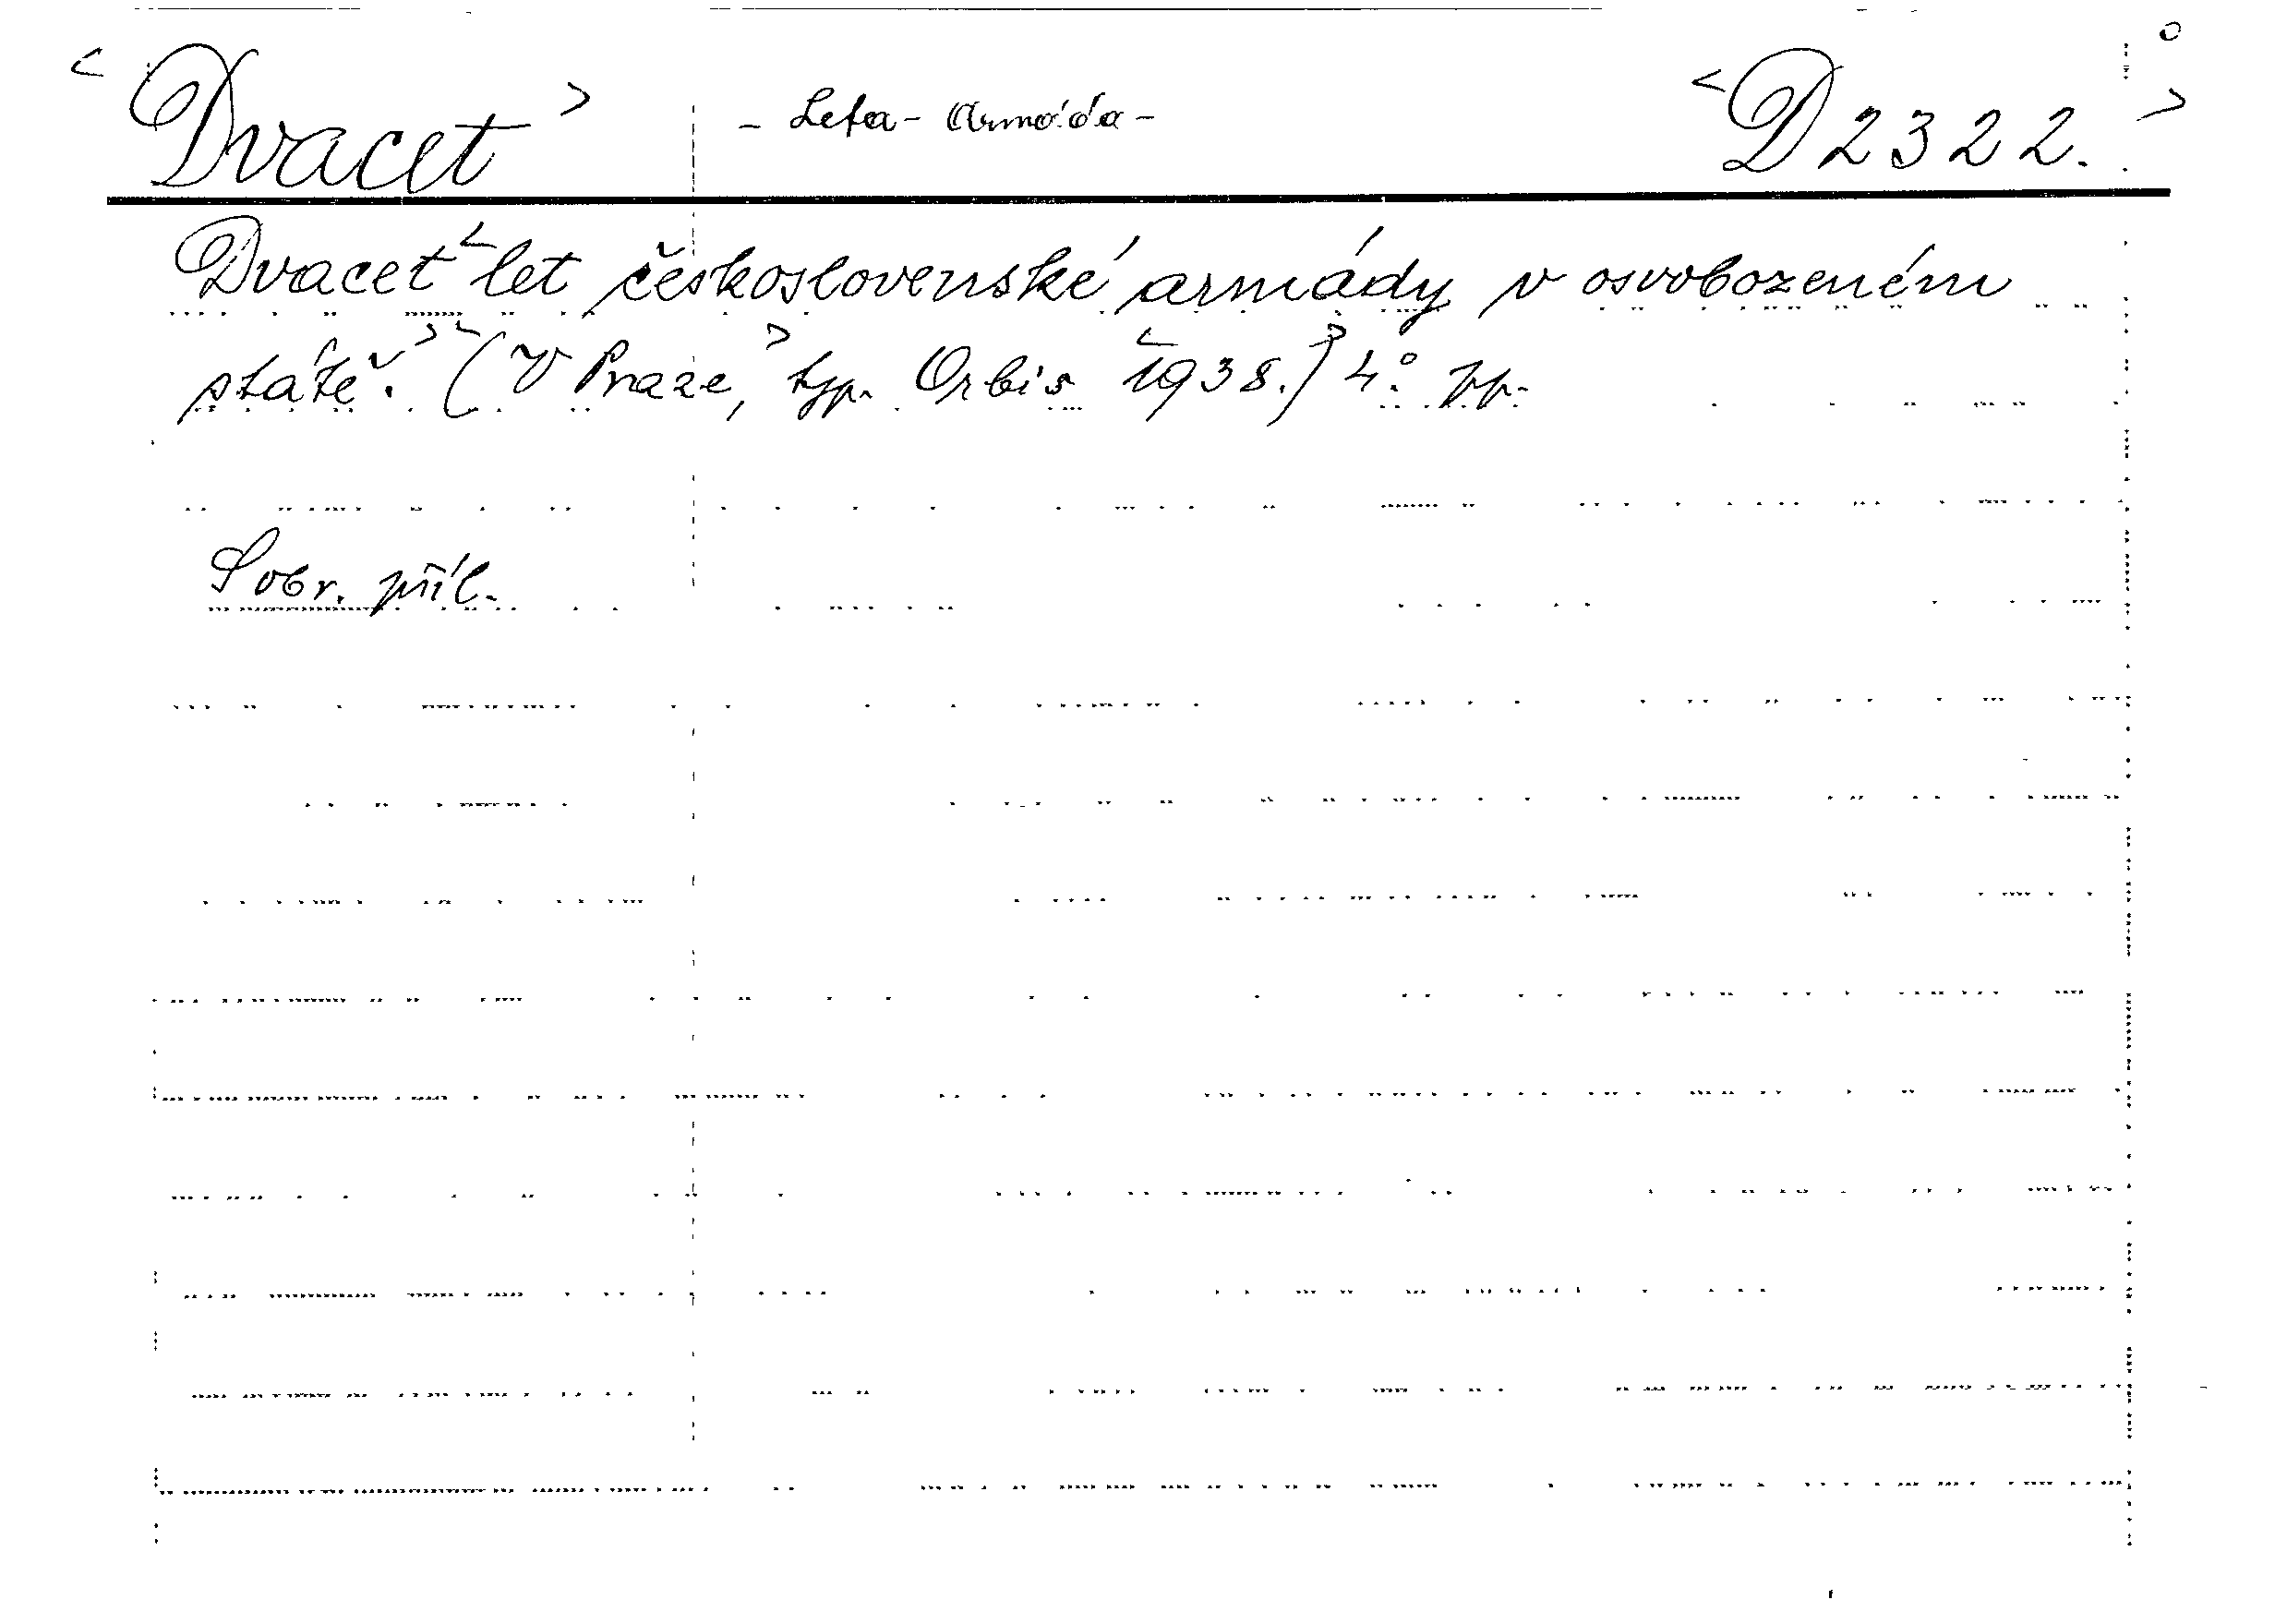 <Dvacet> - Leta - Armáda - <D 2322.>
Dvacet <let československé armády v osvobozeném
státě.> <(V Praze,> typ. Orbis <1938.)> 4.° pp.
S obr. příl.